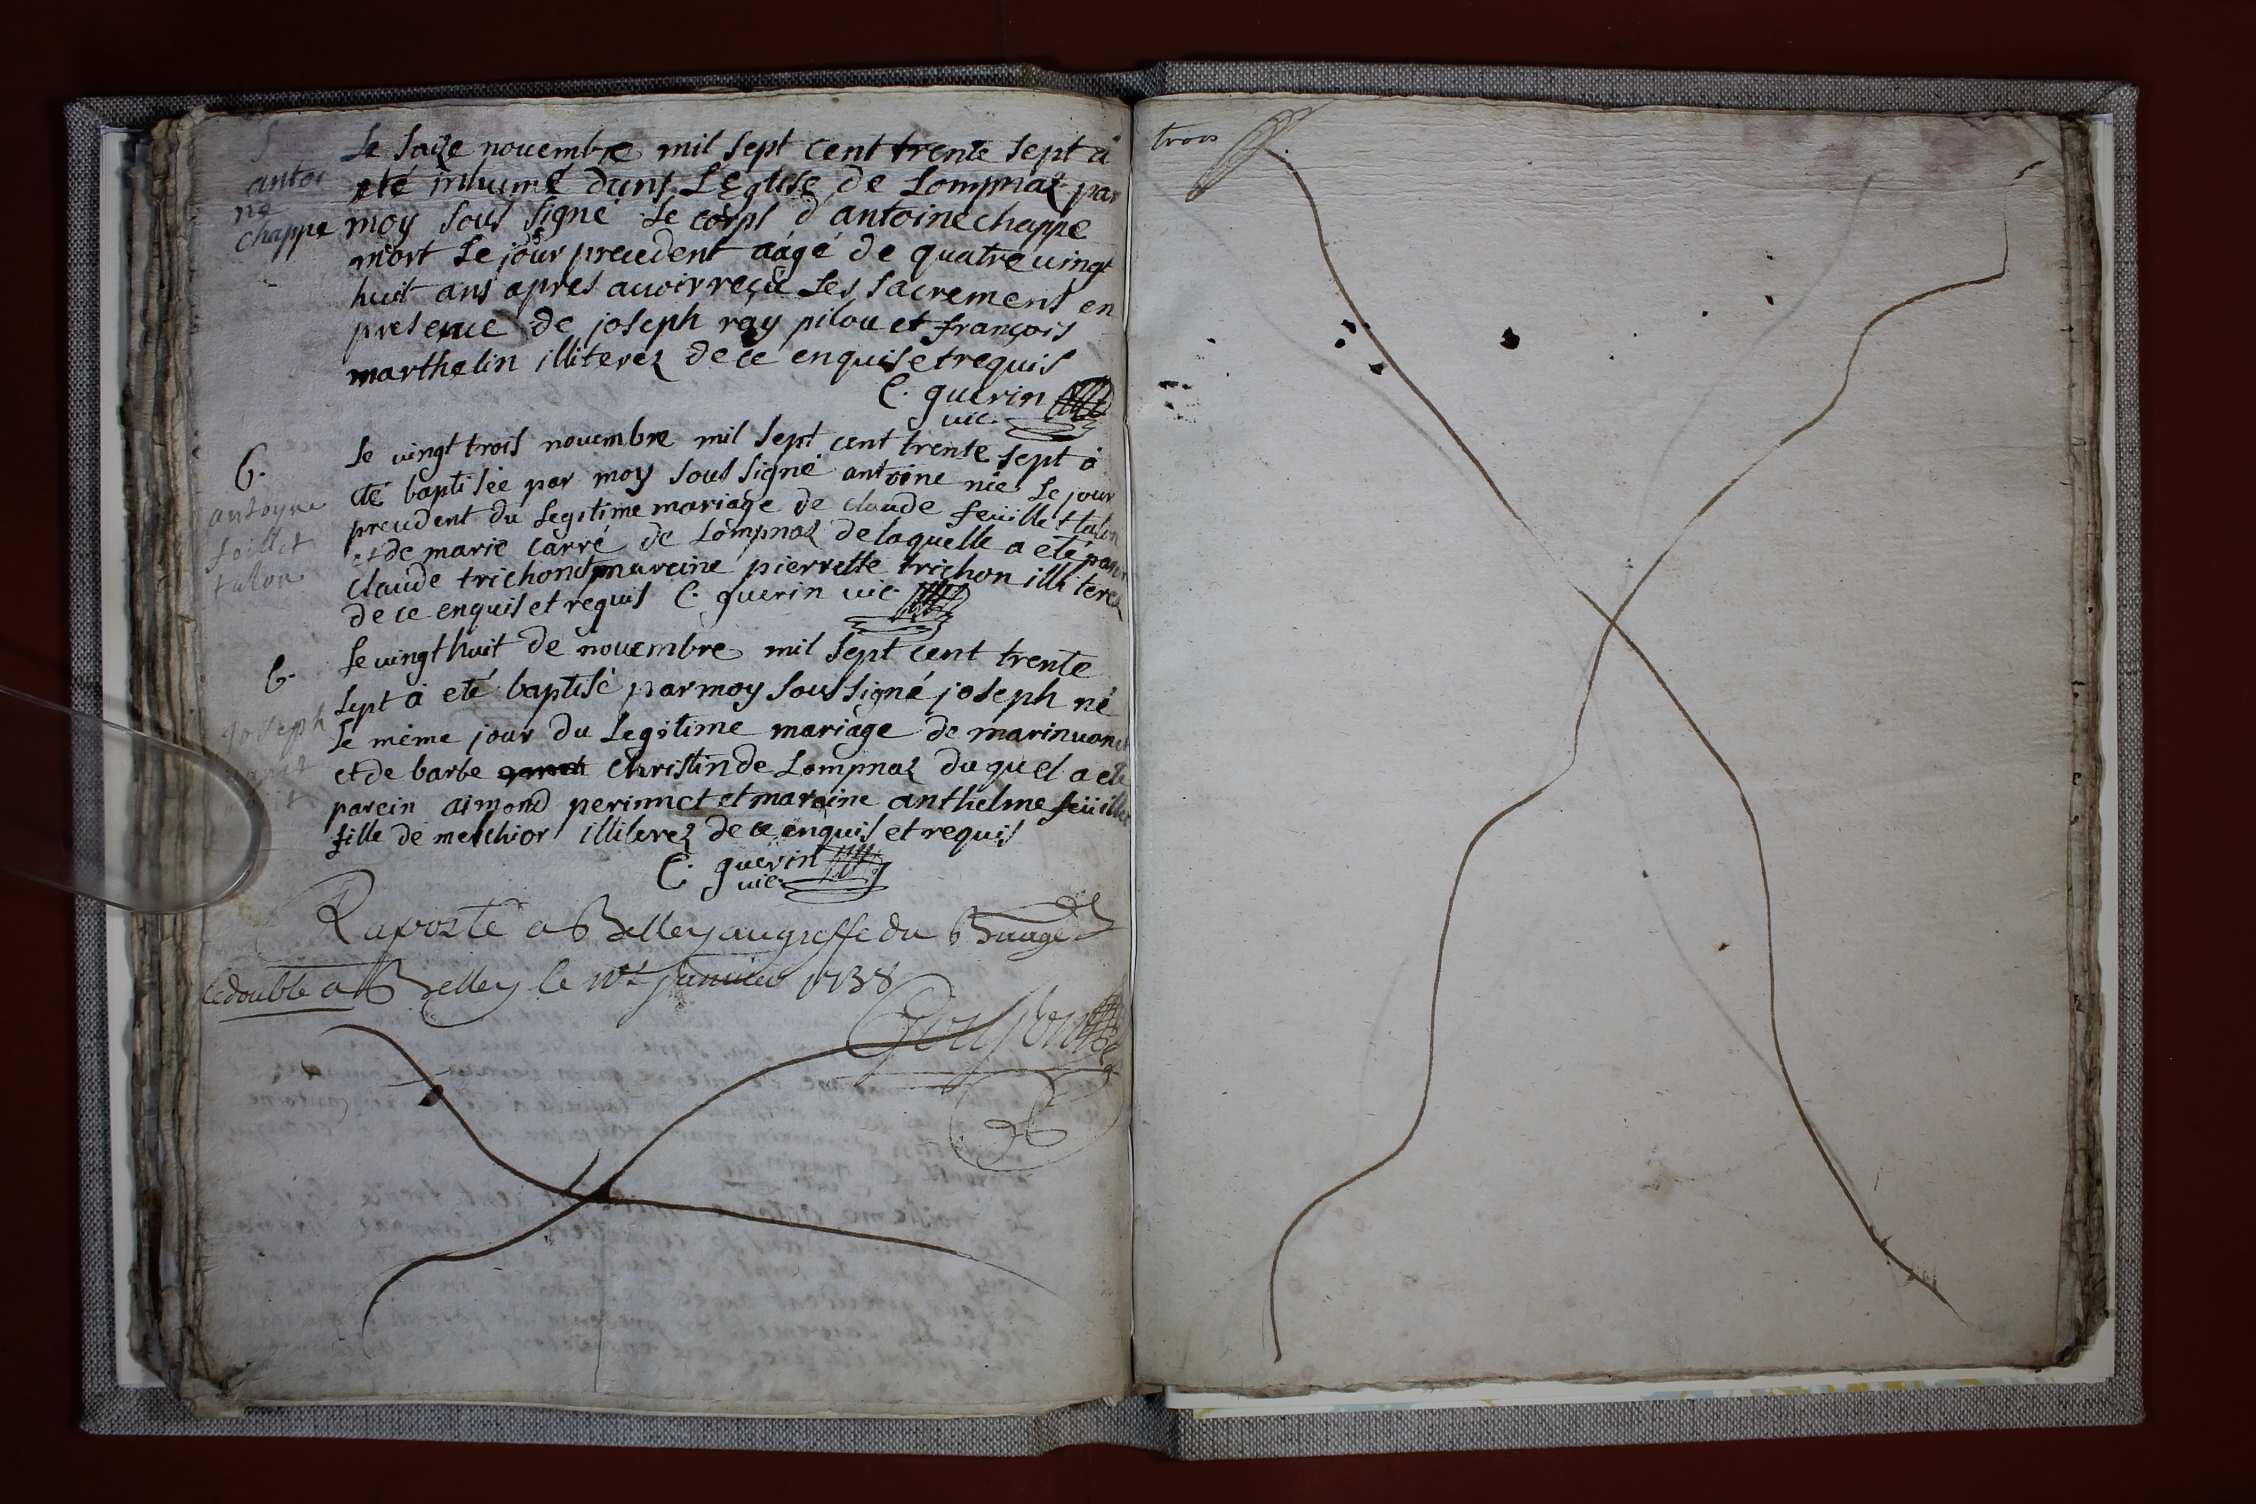 S
antoi
ne
chappe
Le saize novembre mil sept cent trente sept a
eté inhumé dans L'Eglise de Lompnaz par
moy sous signé Le corps d'antoine chappe
mort Le jour precedent aagé de quatre vingt
huit ans apres avoir reçu Les sacrements en
presence de joseph ray pilou et françois
marthelin illiterez de ce enquis et requis
C. guerin
vic.
B.
antoyne
foillet
talon
Le vingt trois novembre mil sept cent trente sept à
eté baptisée par moy sous signé antoine née Le jour
precedent du Legitime mariage de claude feüillet talon
et de marie carré de Lompnaz de laquelle a eté parein
claude trichon et mareine pierrette trichon illiterez
de ce enquis et requis C. guerin vic.
B.
joseph
Le vingt huit de novembre mil sept cent trente
sept à eté baptisé par moy sous signé joseph né
Le même jour du Legitime mariage de marin
et de barbe christin de Lompnaz duquel a eté
parein aimond perinnet et mareine anthelme feüillet
fille de melchior illiterez de ce enquis et requis
C. guerin
vic.
Raporté a Belley au greffe du Bauge
le double a Belley le janvier 1738
trois